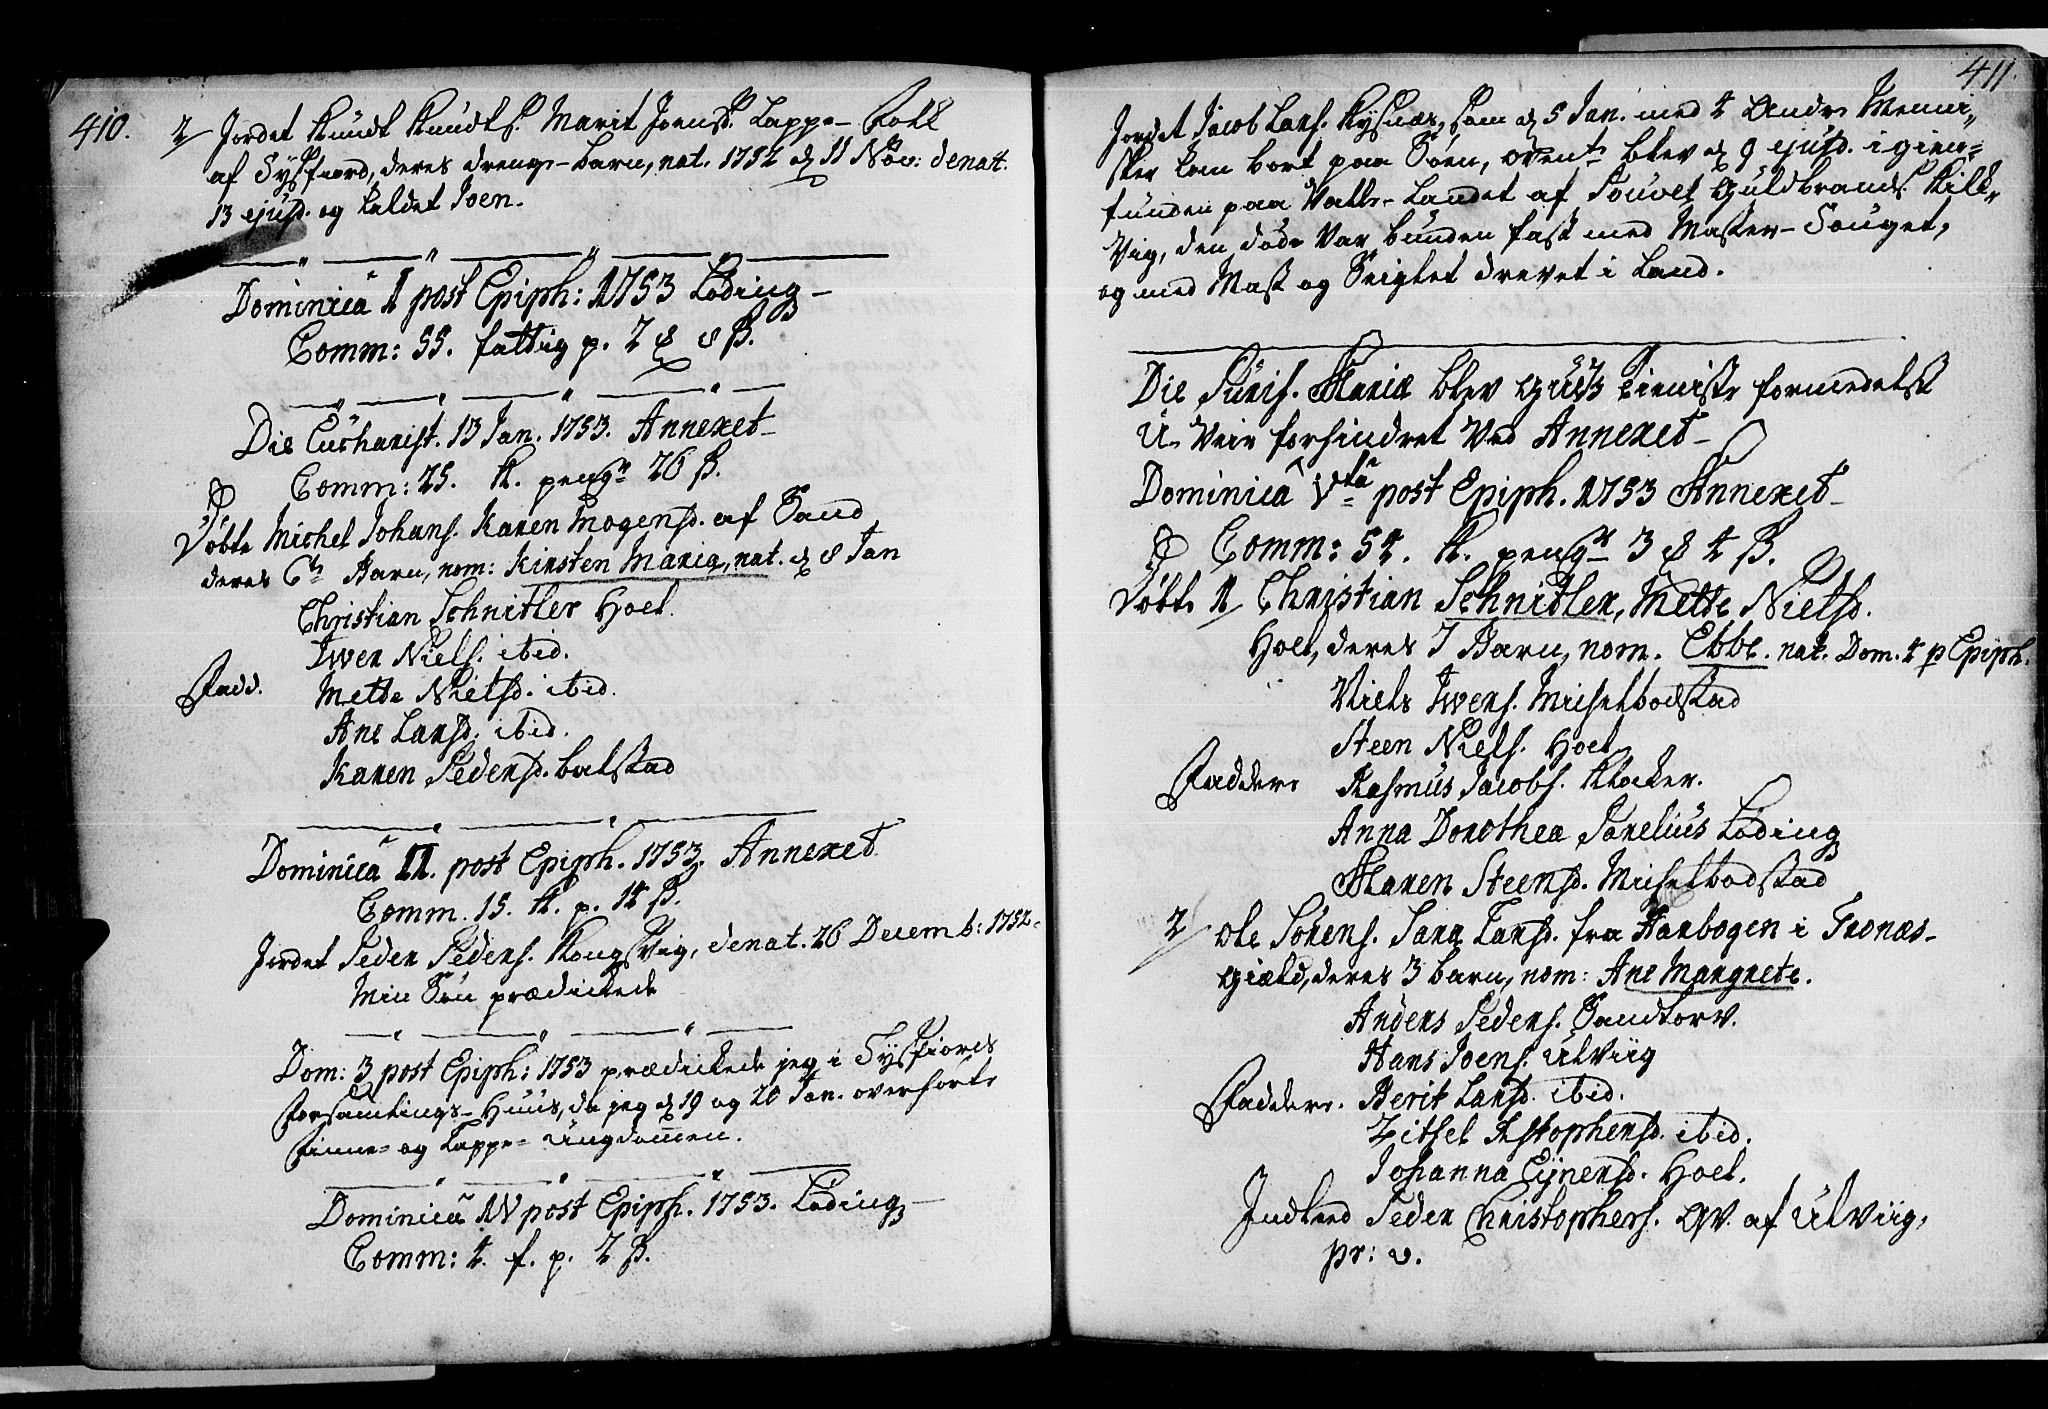 410.
2/ Jordet Knudt Knudts. Marit Joensd. Lappe-Folk
af Tysfiord, deres drenge-barn, nat. 1752 d 11 Nov: denat.
13 ejusd. og kaldet Joen.
Dominica 1 post Epiph: 1753 Löding
Comm: 55. fattig p. 2 8 ß.
Die Eucharist. 13 Jan. 1753. Annexet
Comm: 25. K. penge 26 ß.
Döbte Michel Johans. Karen Mogensd. af Sand
deres 6te Barn, nom: Kirsten Maria, nat. d 8 Jan
Christian Schnitler Hoel.
Iwer Niels. ibid.
Fadd. Mette Nielsd. ibid.
Ane Larsd. ibid.
Karen Pedersd. balstad
Dominica II. post Epiph. 1753. Annexet
Comm. 15. K. p. 14 ß.
Jordet Peder Peders. Kongsvig, denat. 26 Decemb: 1752.
Min Sön prædickede
Dom: 3 post Epiph: 1753 prædickede jeg i Tysfiords
Forsamlings-Huus, da jeg d 19 og 20 Jan. overhörte
Finne- og Lappe-Ungdommen.
Dominica IV post Epiph. 1753. Löding
Comm: 4. f. p. 2 ß.
411.
Jordet Jacob Lars. Rysnæs, som d 5 Jan. med 4 Andre Menni-
sker kom bort paa Söen, blev d 9 ejusd. igien-
funden paa Valle-Landet af Povel Guldbrands. Kild-
vig, den döde var bunden fast med Master-Touget,
og med Mast og Seiglet drevet i Land.
Die Purif. Mariæ blev Guds tieniste formedelst
U-Veir forhindret ved Annexet
Dominica Vta post Epiph. 1753 Annexet
Comm: 54. K. penge 3 4 ß.
Döbte 1/ Christian Schnitler, Mette Nielsd.
Hoel, deres 7 Barn, nom. Ebbe. nat. Dom. 4 p Epiph.
Niels Iwers. Michelbodstad
Steen Niels. Hoel
Faddere Rasmus Jacobs. Klocker.
Anna Dorothea Parelius Löding
Maren Steensd. Michelbodstad
2/ Ole Sörens. Sara Larsd. fra Aarbogen i Tronæs-
gield, deres 3 barn, nom: Ane Margrete.
Anders Peders. Sandtorv.
Hans Joens. Ulviig
Faddere. Berit Larsd. ibid.
Zitsel Kstophersd. ibid.
Johanna Ejnersd. Hoel.
Indled Peder Christophers. QV. af Ulviig,
pr: v.